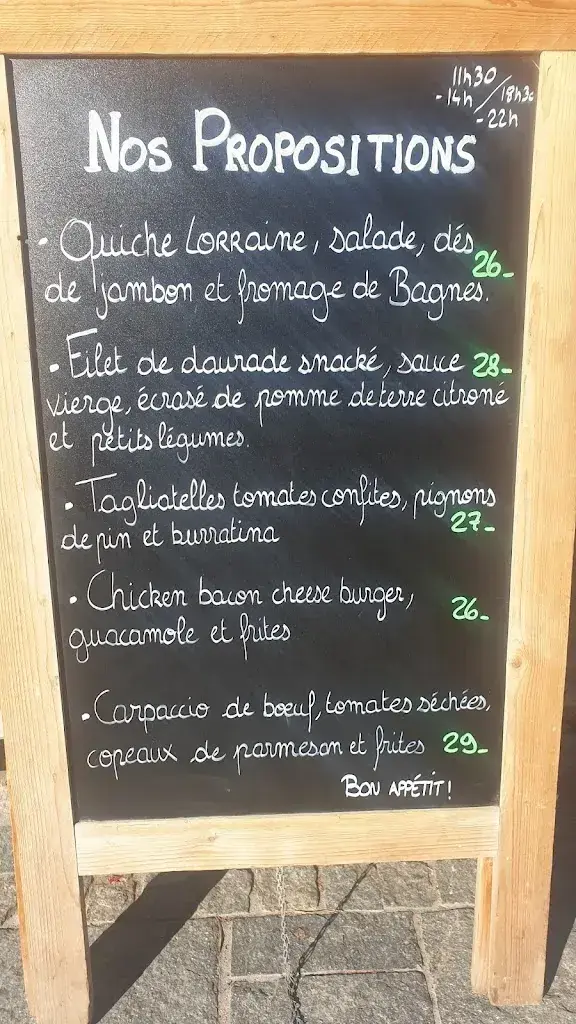 11h30
-14h / 18h30
-22h
Nos Propositions
• Quiche Lorraine, salade, dés
de jambon et fromage de Bagnes. 26.-
• Filet de daurade snacké, sauce 28.-
vierge, écrasé de pomme de terre citroné
et petits légumes.
• Tagliatelles tomates confites, pignons
de pin et burratina 27.-
• Chicken bacon cheese burger,
guacamole et frites 26.-
• Carpaccio de bœuf, tomates séchées,
copeaux de parmesan et frites 29.-
Bon appétit !